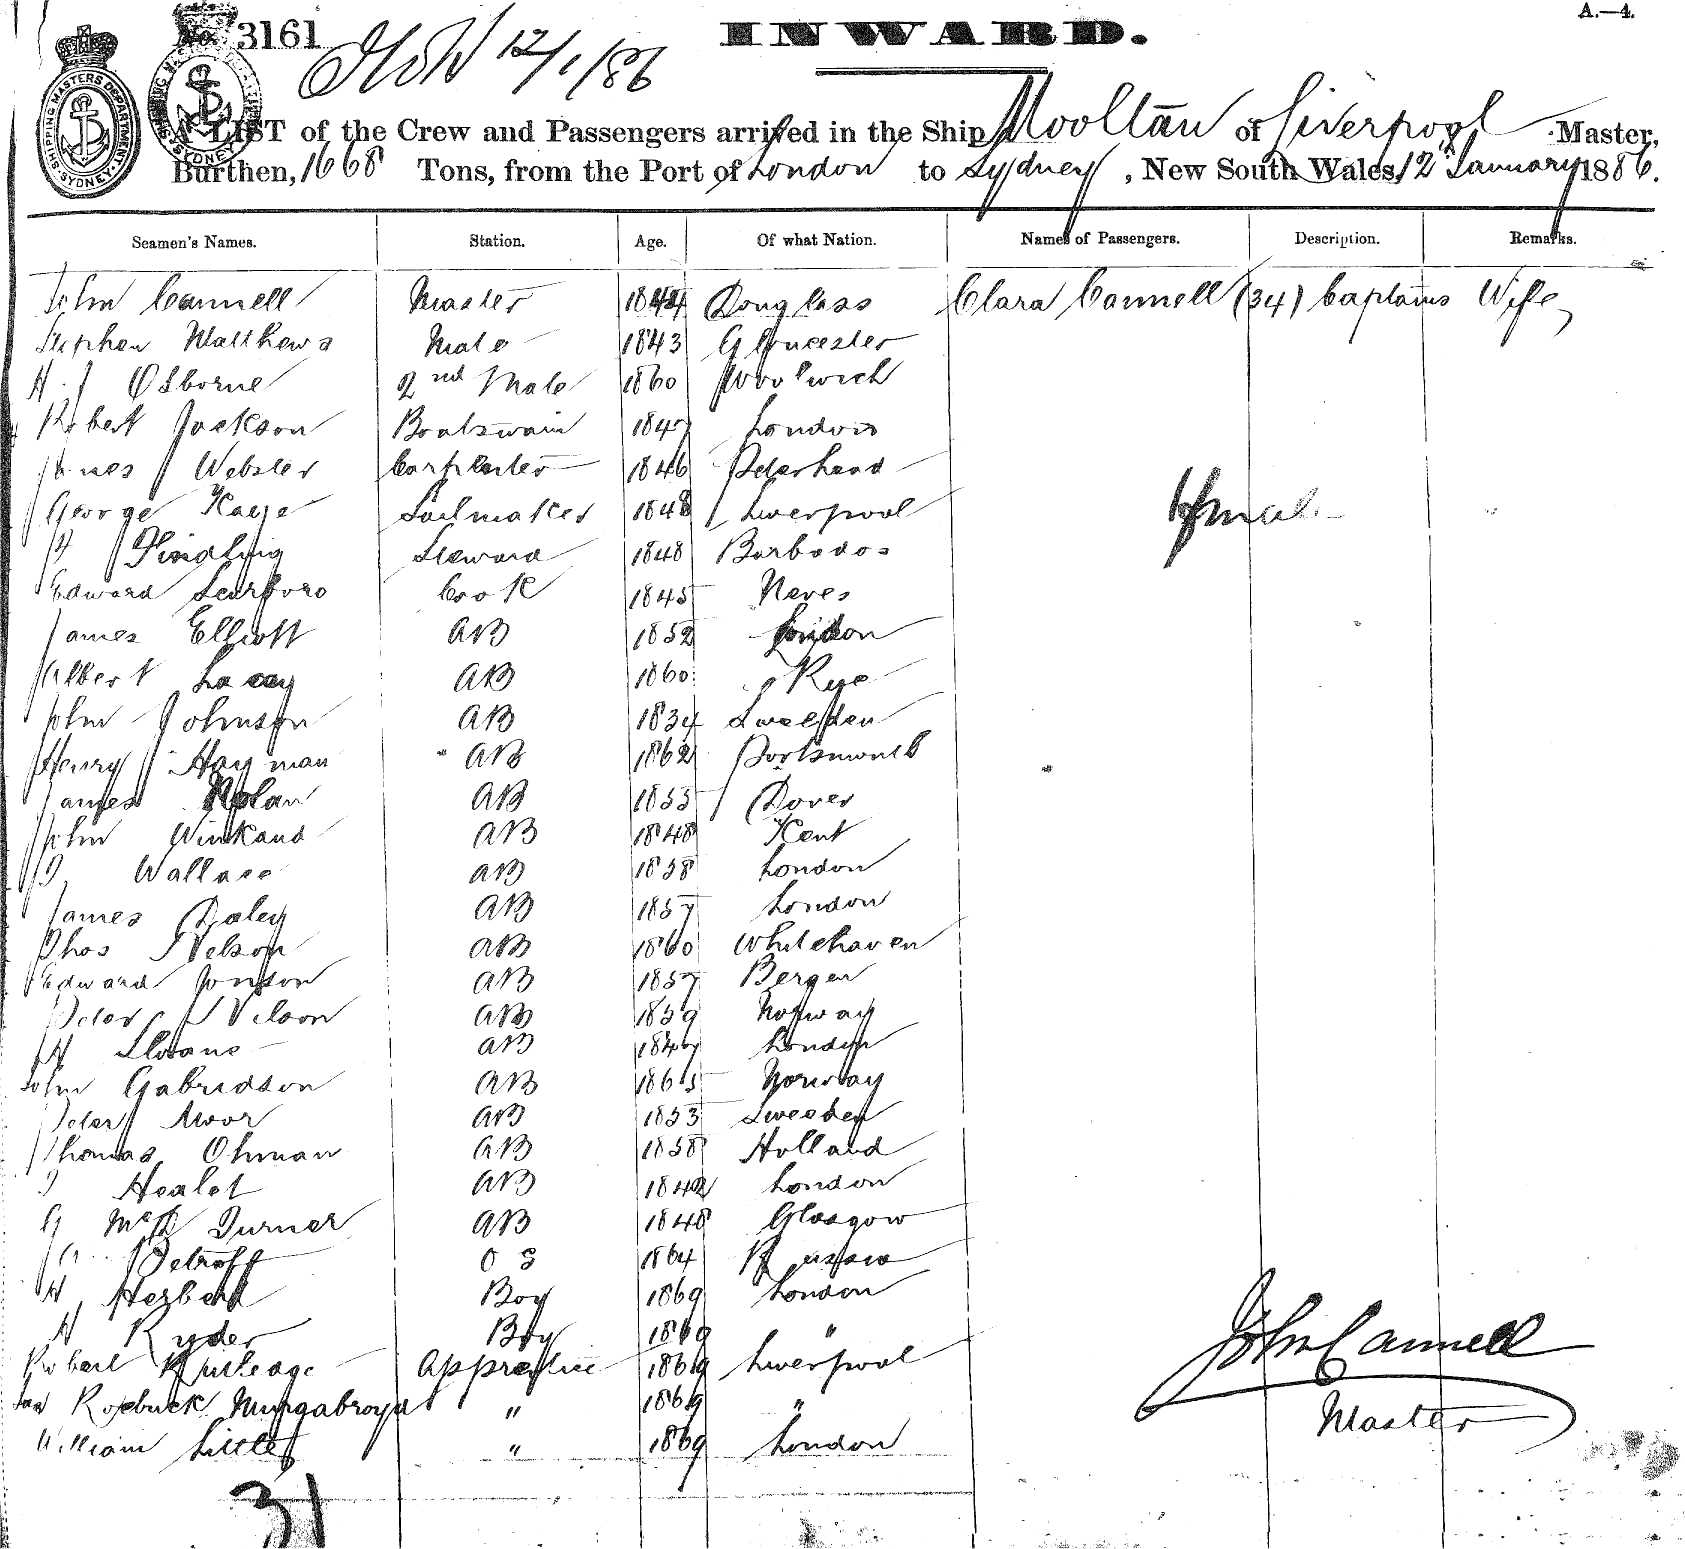 A.—4.
No. 3161 INWARD.
12/1/86
SHIPPING MASTERS DEPARTMENT SYDNEY
A LIST of the Crew and Passengers arrived in the Ship Mooltan of Liverpool Master,
Burthen, 1668 Tons, from the Port of London to Sydney, New South Wales, 12 January 1886.
Seamen's Names. Station. Age. Of what Nation. Names of Passengers. Description. Remarks.
John Cannell Master 1844 Douglass Clara Cannell (34) Captains Wife
Stephen Matthews Mate 1843 Gloucester
H. J Osborne 2nd Mate 1860 Woolwich
Robert Jackson Boatswain 1847 London
James Webster Carpenter 1846 Peterhead
George Kaye Sailmaker 1848 Liverpool
Steward 1848 Barbados
Edward Scarboro Cook 1845 Neves
James Elliott AB 1852 London
Albert AB 1860 Rye
John Johnson AB 1834 Sweeden
Henry Hayman AB 1862 Portsmouth
James Nolan AB 1855 Dover
John Winkand AB 1848 Kent
Wallace AB 1858 London
James Daley AB 1857 London
Thos Nelson AB 1860 Whitehaven
Edward Jonson AB 1857 Bergen
Peter Nelson AB 1859 Norway
H Sloane AB 1847 London
John Gabrielson AB 1865 Norway
Peter Moor AB 1853 Sweeden
Thomas Ohman AB 1858 Holland
AB 1842 London
G Turner AB 1848 Glasgow
Petroff OS 1864 Russia
H Herbert Boy 1869 London
H Ryder Boy 1869 "
Robert Rutleage Apprentice 1869 Liverpool
Roebuck " 1869 "
William Little " 1869 London
John Cannell
Master
31